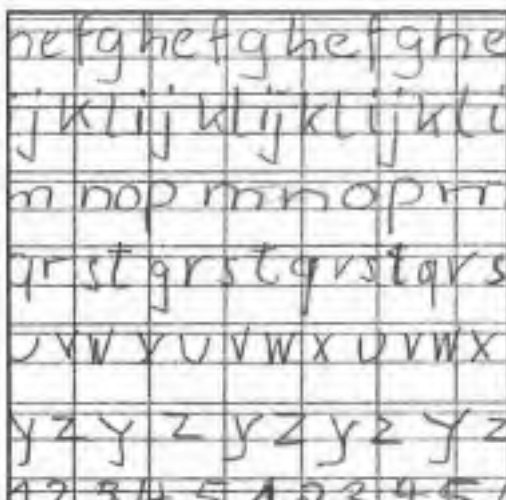 hefghefghefghe
ijklijklijklijkli
mnopmnopm
qrstgrstqrstqrs
uvwxuvwxuvwx
yzyzyzyzyz
1234512345